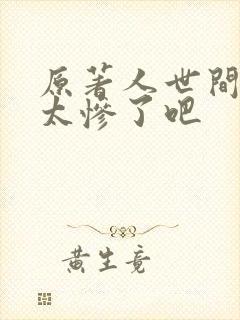 原著人世間
太慘了吧
黄生竟